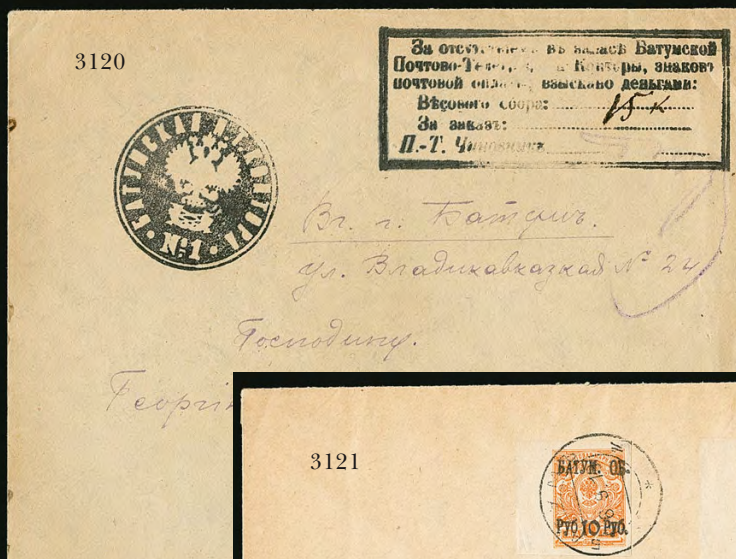 3120
За отсутствіемъ въ запасѣ Батумской
Почтово-Телегр. Конторы, знаковъ
почтовой оплаты, взыскано деньгами:
Вѣсового сбора: 15 к
За заказъ:
П.-Т. Чиновникъ
БАТУМСКАЯ
№ 1
Вг. г. Батумъ.
ул. Владикавказкая № 24
Господину.
Георгі
3121
БАТУМ. ОБ.
Руб 10 Руб.